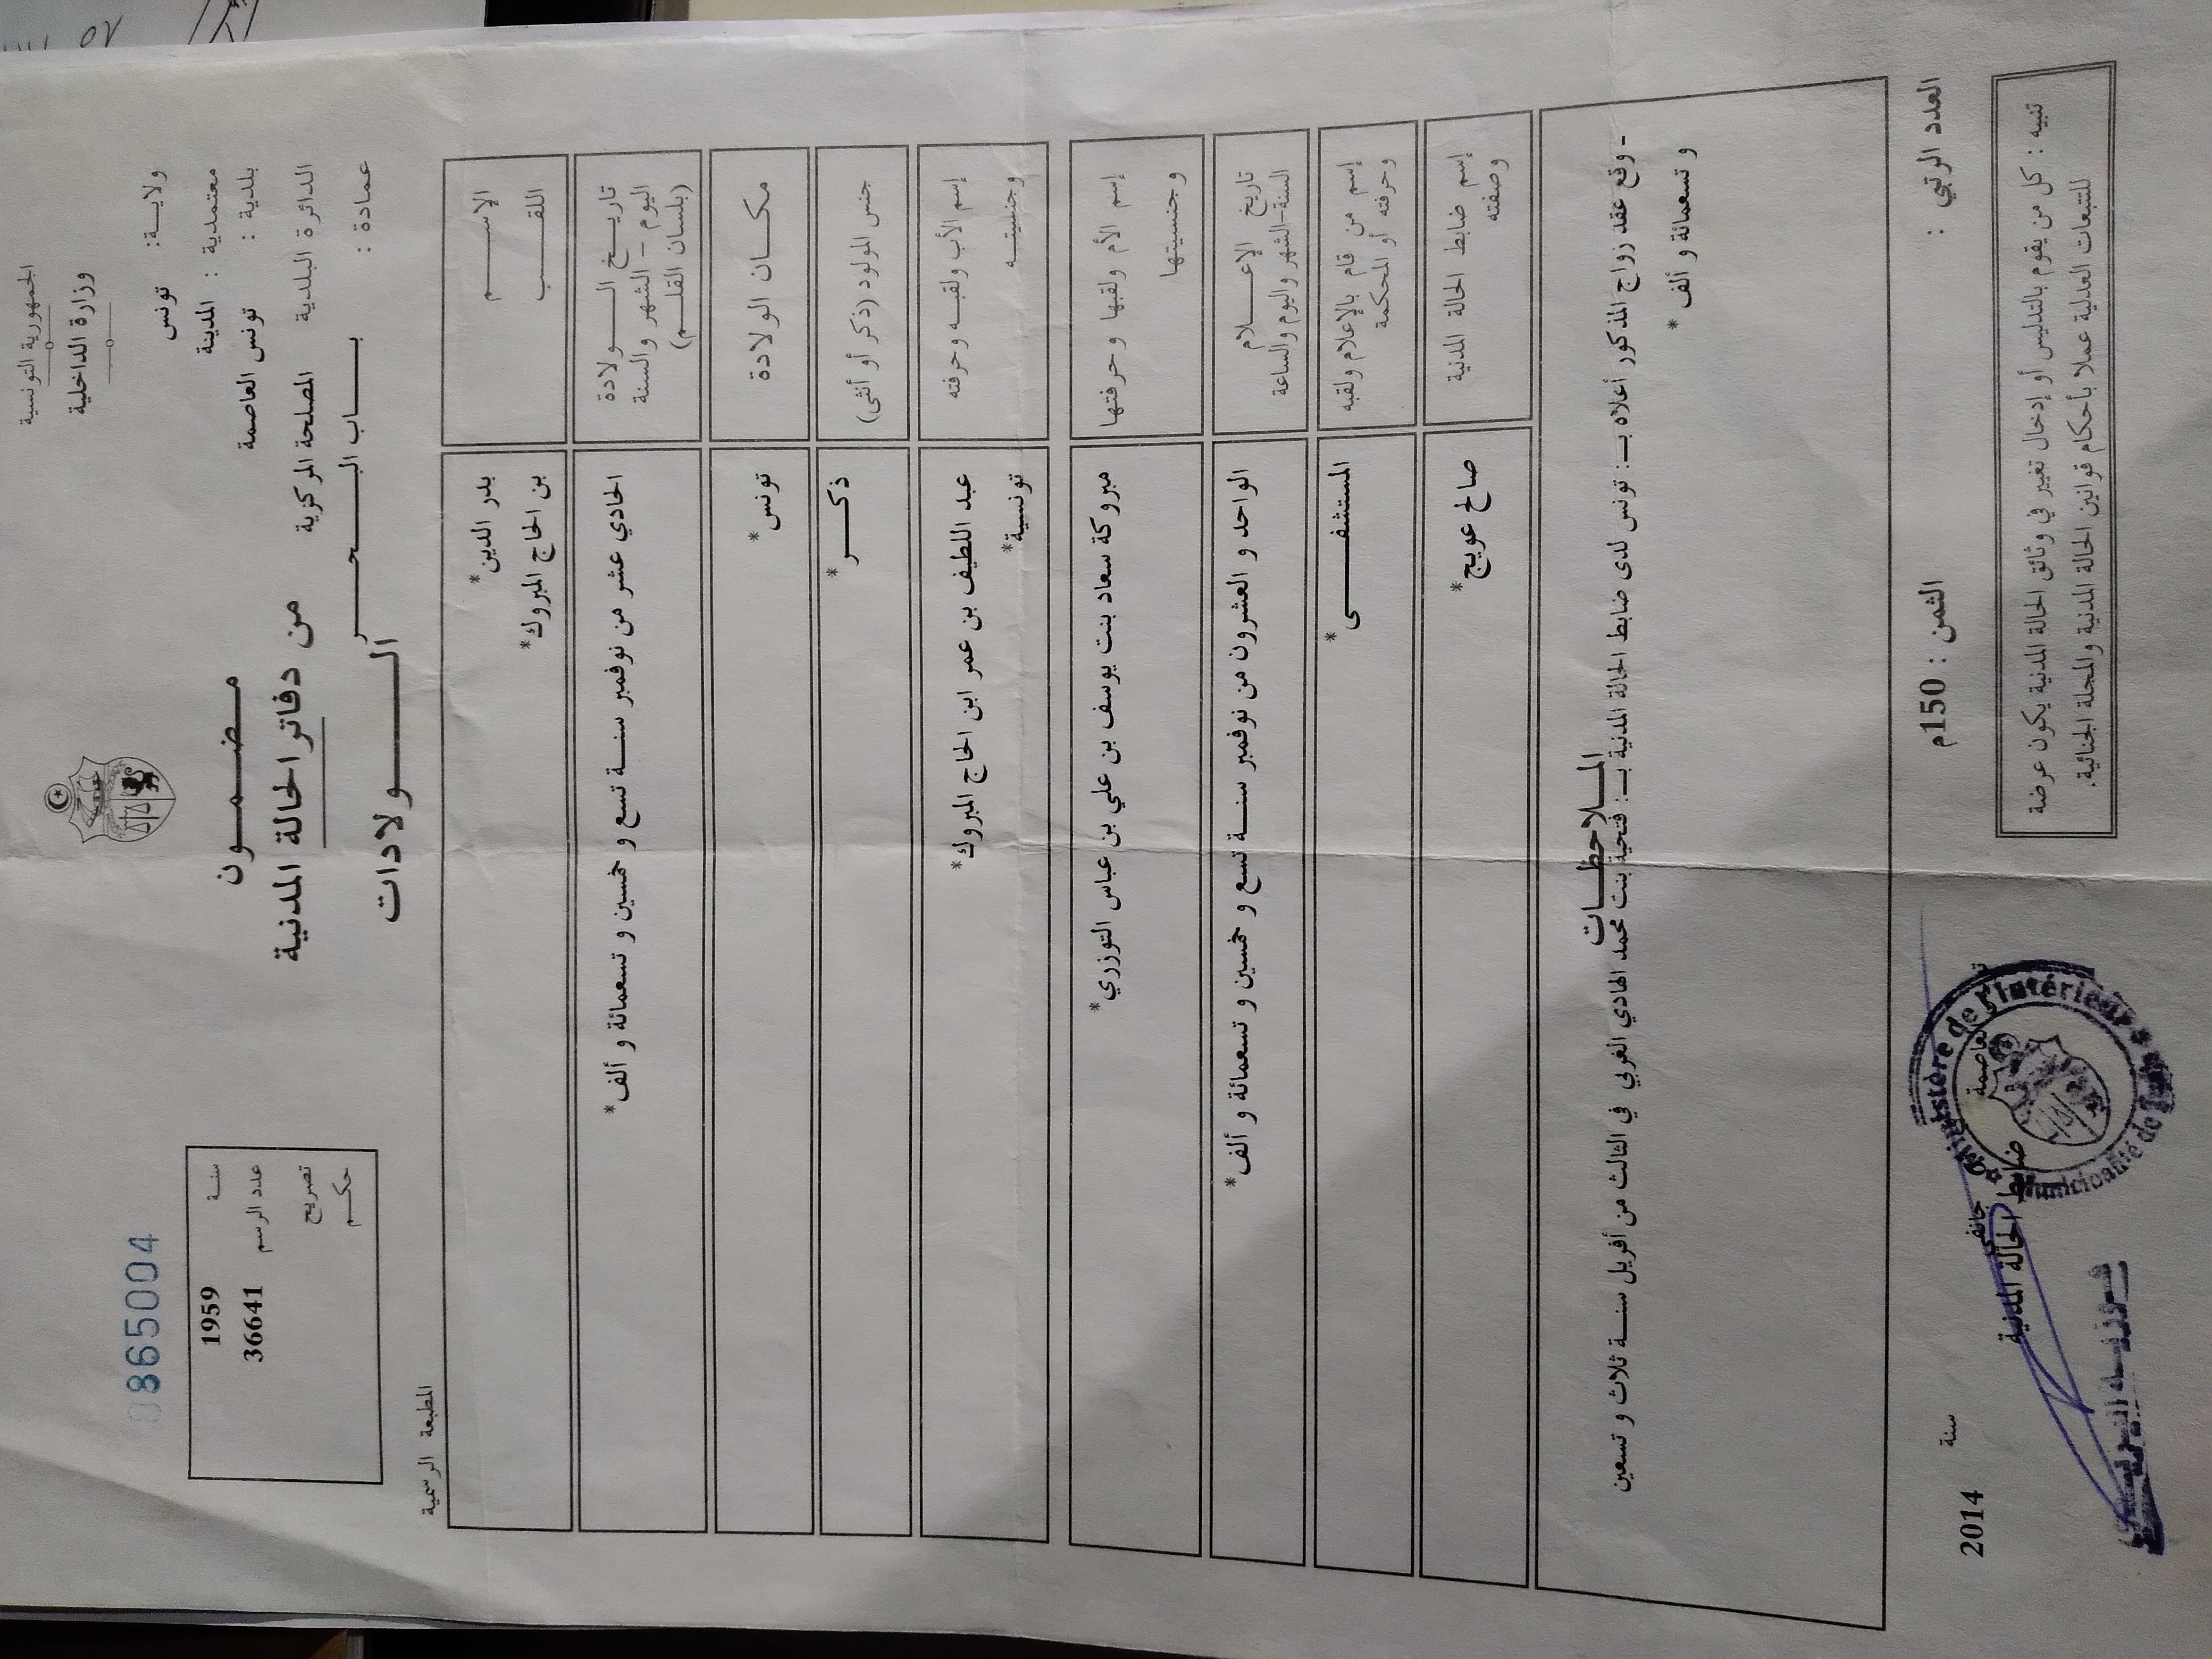 الجمهورية التونسية
وزارة الداخلية
ولايـــة: تونس
معتمدية : المدينة
بلدية : تونس العاصمة
الدائرة البلدية المصلحة المركزية
عمادة : بـــــاب البـــــحـــــر
مـضـمـــون
من دفاتر الحالة المدنية
الـــــــولادات
0865004
سنـــة 1959
عدد الرسم 36641
تصريح
حكـــم
المطبعة الرسمية
الإســـــم بدر الدين*
اللقـــــب بن الحاج المبروك*
تاريـــخ الـــــولادة
اليوم – الشهر والسنة
(بلسان القلـــم)
الحادي عشر من نوفمبر سنـــة تسع و خمسين و تسعمائة و ألف*
مكـــان الولادة تونس*
جنس المولود (ذكر أو أنثى) ذكـــــر*
إسم الأب ولقبـــه وحرفته عبد اللطيف بن عمر ابن الحاج المبروك*
وجنسيتـــه تونسية*
إسم الأم ولقبها وحرفتها مبروكة سعاد بنت يوسف بن علي بن عباس التوزري*
وجنسيتها
تاريخ الإعـــــلام
السنة-الشهر واليوم والساعة
الواحد و العشرون من نوفمبر سنـــة تسع و خمسين و تسعمائة و ألف*
إسم من قام بالإعلام ولقبه
وحرفته أو المحكمة
المستشفـــــى*
إسم ضابط الحالة المدنية
وصفته
صالح عويج*
المـــلاحظـــات
- وقع عقد زواج المذكور أعلاه بـ: تونس لدى ضابط الحالة المدنية بـ: فتحية بنت محمد الهادي الغربي في الثالث من أفريل سنـــة ثلاث و تسعين
و تسعمائة و ألف*
العدد الرتبي :
الثمن : 150م
تنبيه : كل من يقوم بالتدليس أو إدخال تغيير في وثائق الحالة المدنية يكون عرضة
للتتبعات العدلية عملا بأحكام قوانين الحالة المدنية والمجلة الجنائية.
العاصمة
جانفي
سنة 2014
ضابط الحالة المدنية
Ministère de l'Intérieur
Municipalité de Tunis